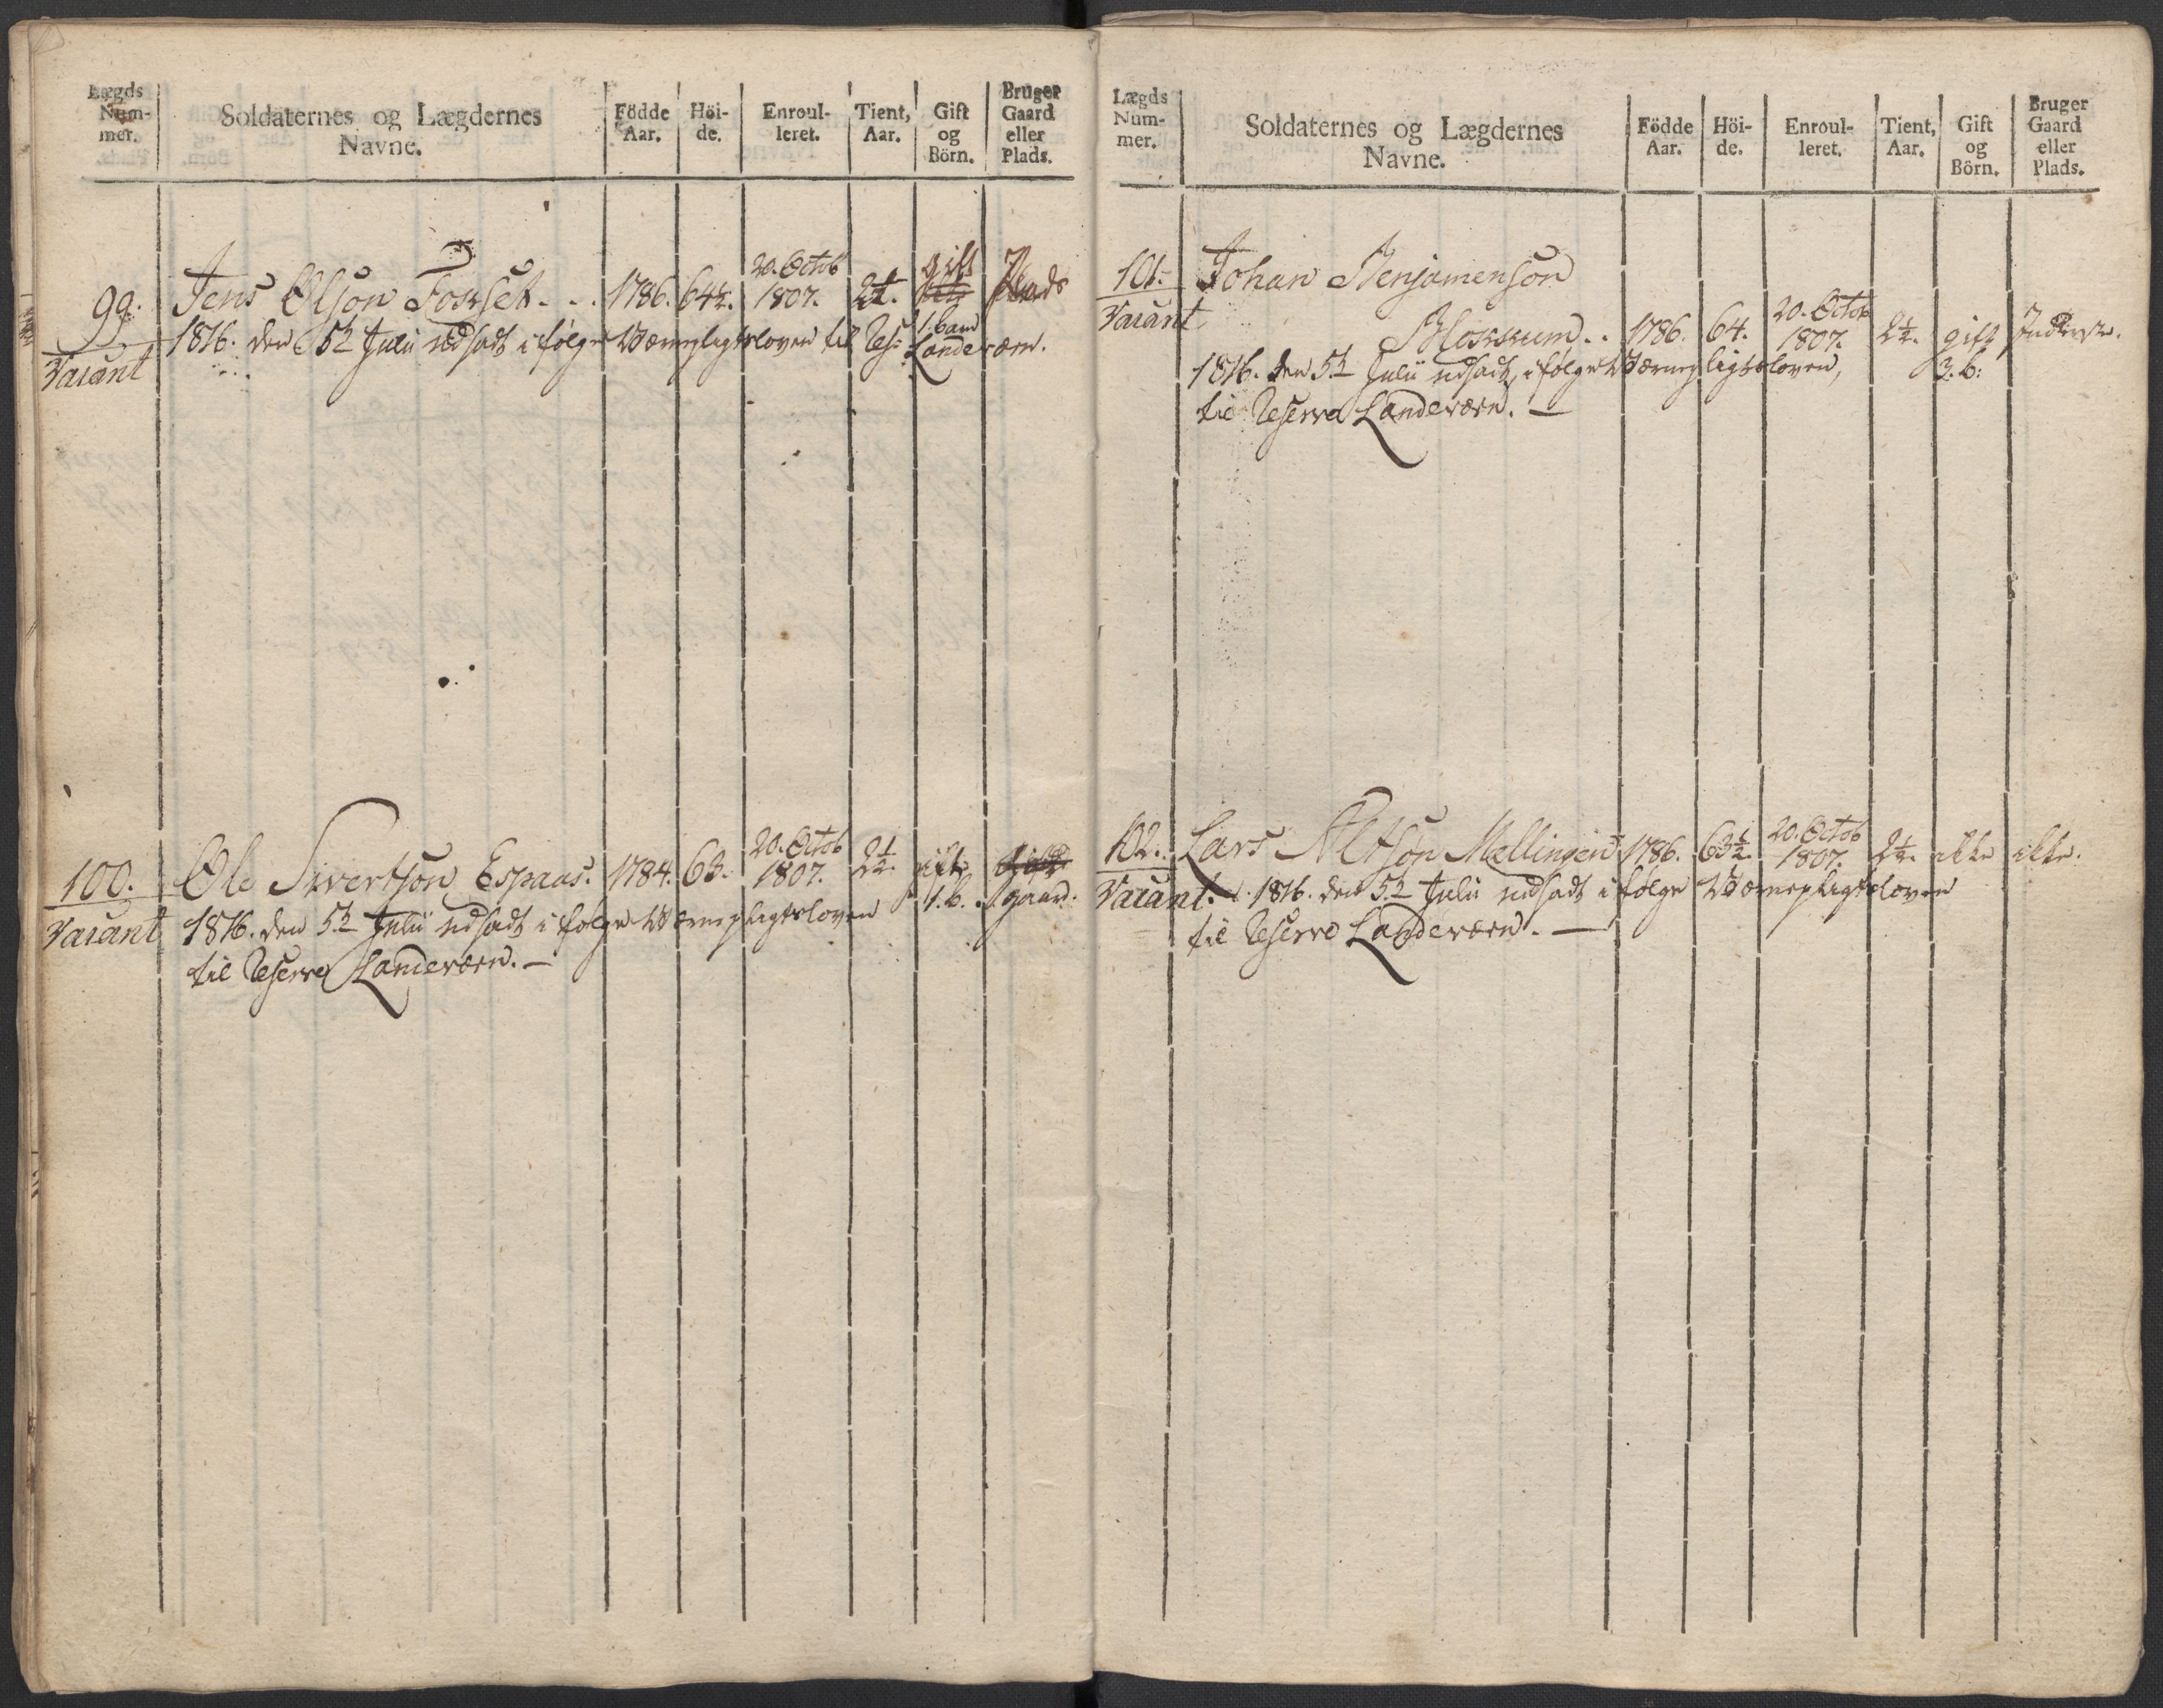 Lægds Num-mer. Soldaternes og Lægdernes Navne. Födde Aar. Höi-de. Enroul-leret. Tient, Aar. Gift og Börn. Bruger Gaard eller Plads.
99. Jens Olson Forset. . . 1786. 64½. 20. Octob 1807. 2½. gift 1. barn Plads
Vacant
1816. den 5te Julii udsadt i følge Værnepligtsloven til Res: Landeværn.
100. Ole Sivertson Espaas. 1784. 63. 20. Octob 1807. 2½. gift 1. b. gaard.
Vacant
1816. den 5te Julii udsadt i følge Værnepligtsloven
til Reserve Landeværn. —
Lægds Num-mer. Soldaternes og Lægdernes Navne. Födde Aar. Höi-de. Enroul-leret. Tient, Aar. Gift og Börn. Bruger Gaard eller Plads.
101. Johan Benjamenson
Vacant
. . 1786. 64. 20. Octob 1807. 2½. gift 3. b: Inderst.
1816. den 5te Julii udsadt, i følge Værnepligtsloven,
til Reserve Landeværn. —
102. Lars Mellingen 1786. 63½. 20. Octob 1807. 2½. ikke ikke.
Vacant. 1816. den 5te Julii udsadt i følge Værnepligtsloven
til Reserve Landeværn. —